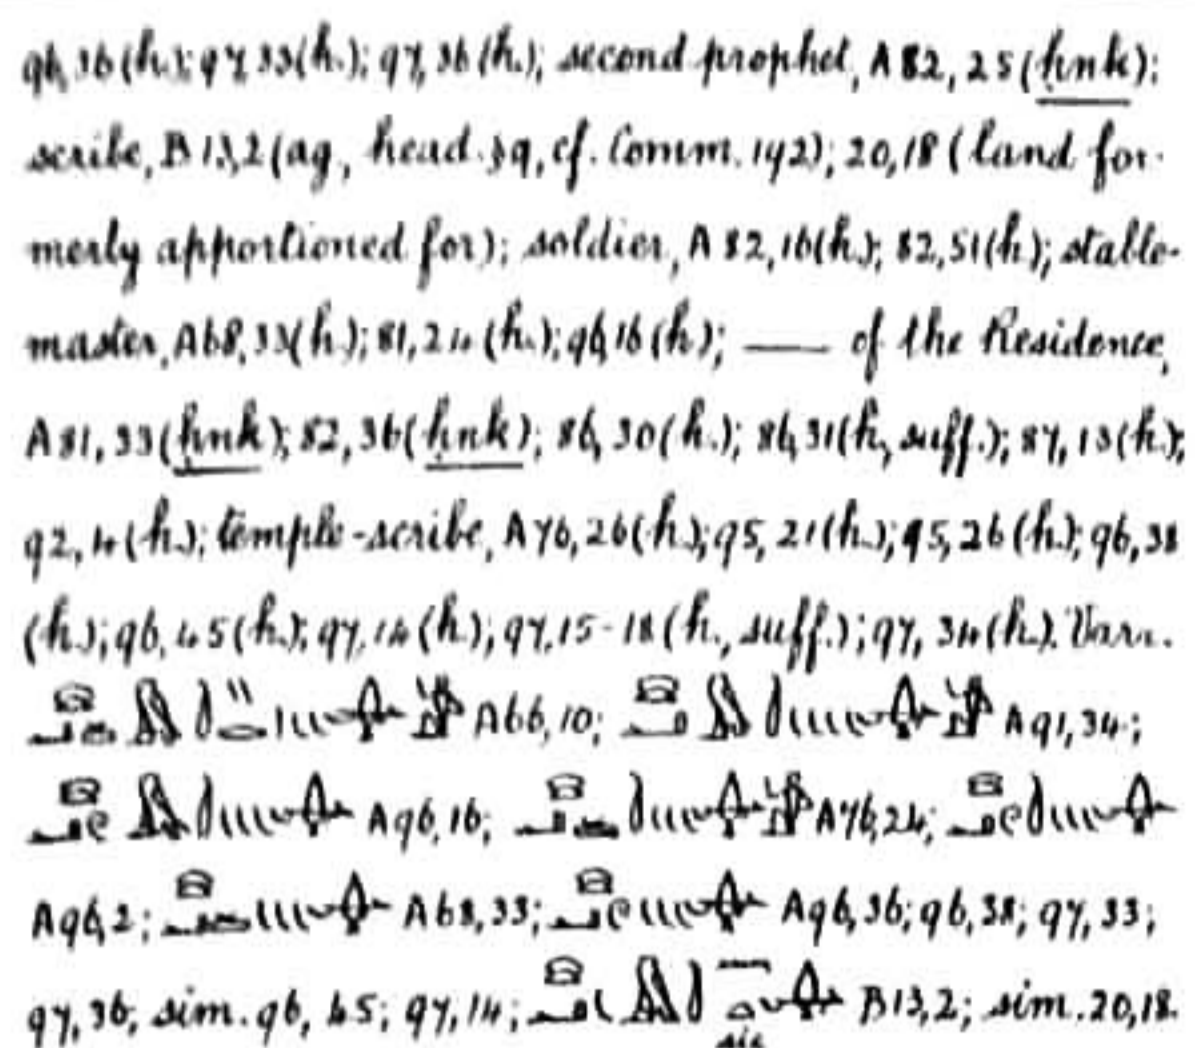 96,36(h.); 97,33(h.); 97,36(h.); second prophet, A 82, 25 (ḥnk);
scribe, B 13,2 (ag, head. §9, cf. Comm. 142); 20,18 (land for-
merly apportioned for); soldier, A 82,16(h.); 82,51(h); stable-
master, A68,33(h.); 81,24(h.); 96,16(h); —— of the Residence,
A81,33(ḥnk); 82,36(ḥnk); 86,30(h.); 86,31(h., suff.); 87,13(h.);
92,4(h.); temple-scribe, A76,26(h.); 95,21(h.); 95,26(h.); 96,38
(h.); 96,45(h.); 97,14(h.); 97,15-18(h., suff.); 97,34(h.). Varr.
A66,10; A91,34;
A96,16; A76,24;
A96,2; A68,33; A96,36; 96,38; 97,33;
97,36; sim. 96,45; 97,14; B13,2; sim. 20,18.
sic